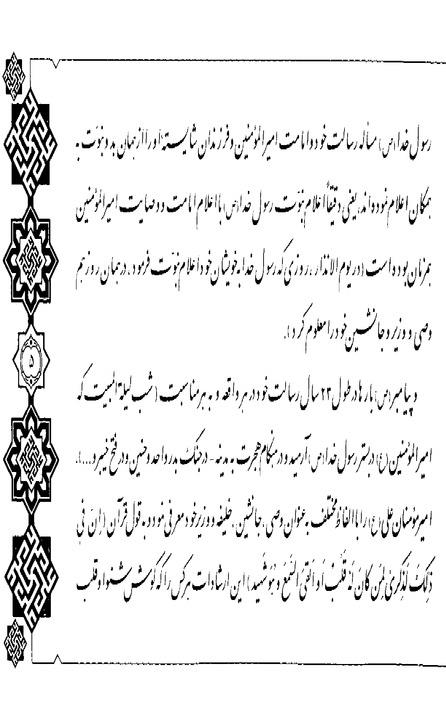 رسول خدا (ص) مسأله رسالت خود و امامت امیرالمؤمنین و فرزندان شایسته او را از همان بدو نبوّت به
همگان اعلام نموده‌اند، یعنی دقیقاً اعلام نبوّت رسول خدا (ص) با اعلام امامت و وصایت امیرالمؤمنین
همزمان بوده است (در یوم الانذار، روزی که رسول خدا به خویشان خود اعلام نبوّت فرمود، در همان روز هم
وصی و وزیر و جانشین خود را معلوم کرد).
و پیامبر (ص) بارها در طول ۲۳ سال رسالت خود در هر واقعه و به هر مناسبت (شب لیلة المبیت که
امیرالمؤمنین (ع) در بستر رسول خدا (ص) آرمید و در هنگام هجرت به مدینه - در جنگ بدر و احد و حنین و در فتح خیبر و...)،
امیر مؤمنان علی (ع) را با الفاظ مختلف به عنوان وصی، جانشین، خلیفه و وزیر خود معرفی نمود و به قول قرآن (إنّ فی
ذلِکَ لَذِکْری لِمَن کانَ لَهُ قَلْبٌ أو ألقَی السَّمعَ وَ هُوَ شَهید) این ارشادات هر کس را که گوش شنوا و قلب
۵